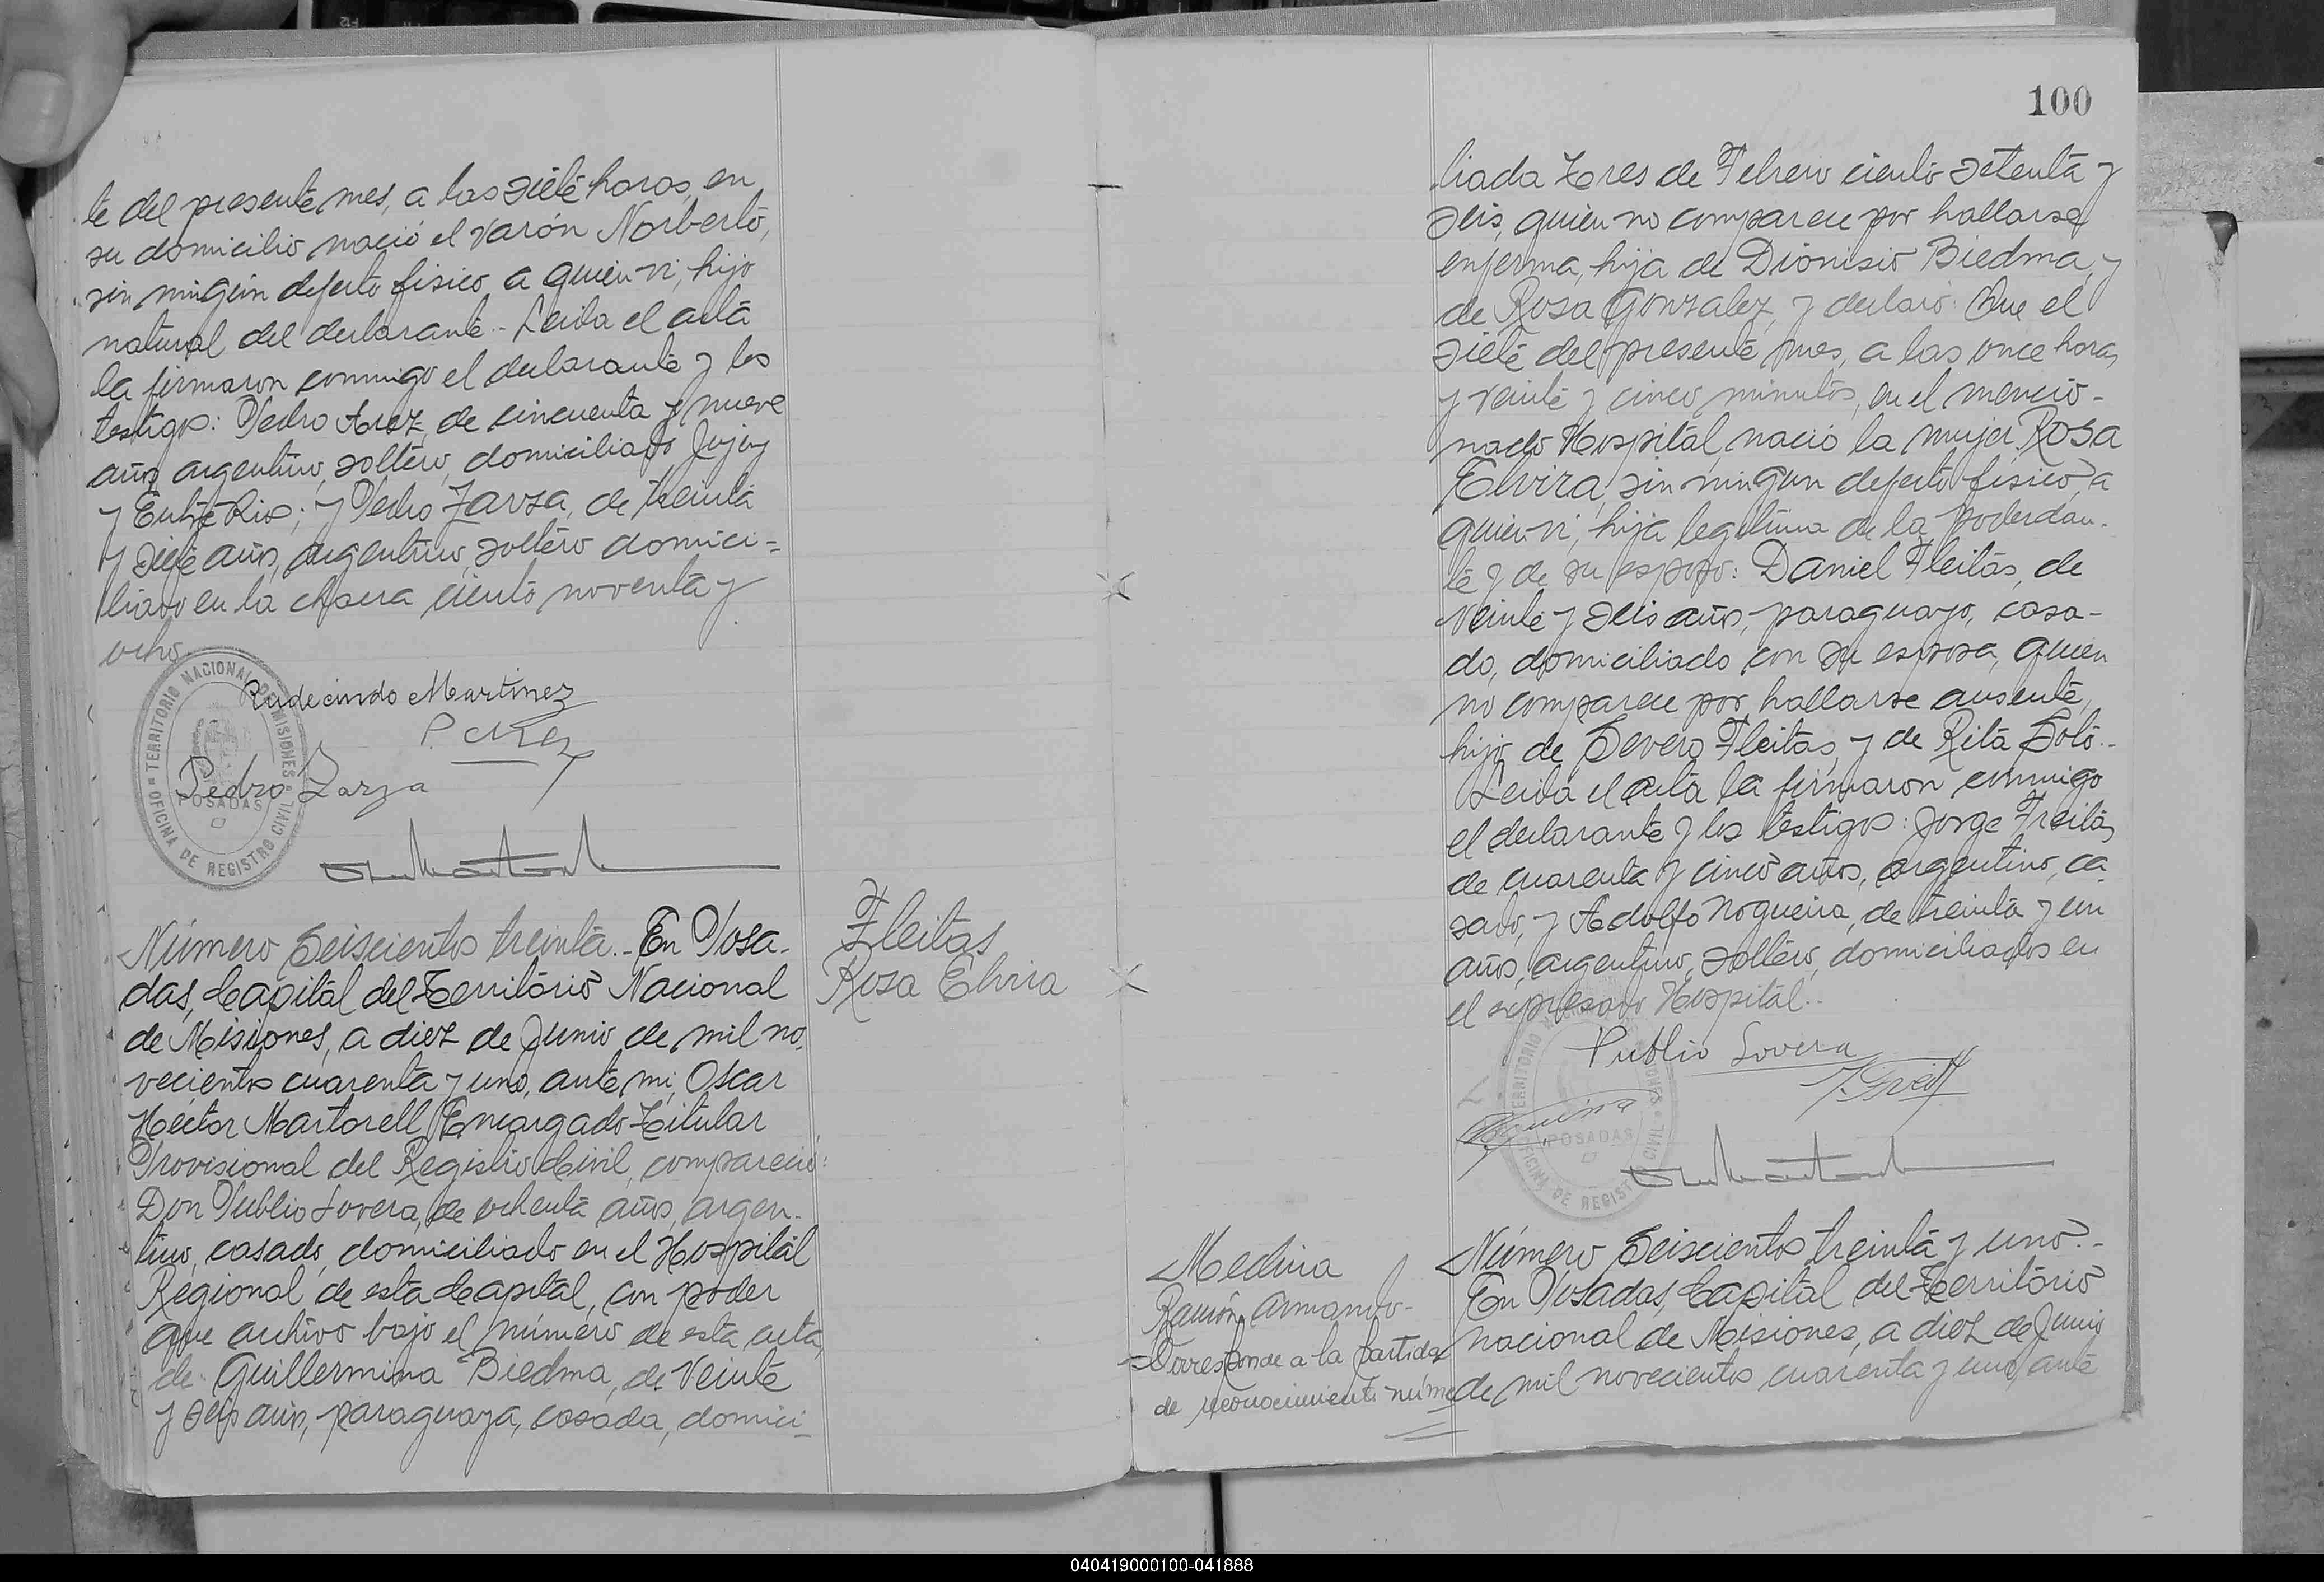 te del presente mes, a las siete horas, en
su domicilio nació el varón Norberto,
sin ningún defecto físico, a quien ví, hijo
natural del declarante.- Leida el acta
la firmaron conmigo el declarante y los
testigos: Pedro Arez, de cincuenta y nueve
años, argentino, soltero, domiciliado Jujuy
y Entre Rios; y Pedro Zarza, de treinta
y siete años, argentino, soltero domici=
liado en la chacra ciento noventa y
ocho.
Rudecindo Martinez
Pedro Zarza
TERRITORIO NACIONAL DE MISIONES
POSADAS
OFICINA DE REGISTRO CIVIL
Número Seiscientos treinta.- En Posa-
das, Capital del Territorio Nacional
de Misiones, a diez de Junio de mil no-
vecientos cuarenta y uno, ante mi, Oscar
Héctor Martorell Encargado Titular
Provisional del Registro Civil, compareció:
Don Publio Lovera, de ochenta años, argen-
tino, casado, domiciliado en el Hospital
Regional de esta Capital, con poder
que archivo bajo el número de esta acta,
de Guillermina Biedma, de veinte
y seis años, paraguaya, casada, domici-
Fleitas
Rosa Elvira
100
liada Tres de Febrero ciento setenta y
seis, quien no comparece por hallarse
enferma, hija de Dionisio Biedma, y
de Rosa Gonzalez, y declaró: Que el
siete del presente mes, a las once horas
y veinte y cinco minutos, en el mencio-
nado Hospital, nació la mujer Rosa
Elvira, sin ningun defecto físico, a
quien ví, hija legítima de la poderdan-
te y de su esposo: Daniel Fleitas, de
veinte y seis años, paraguayo, casa-
do, domiciliado con su esposa, quien
no comparece por hallarse ausente,
hijo de Severo Fleitas, y de Rita Soto.-
Leida el acta la firmaron conmigo
el declarante y los testigos: Jorge Freitas,
de cuarenta y cinco años, argentino, ca-
sado, y Adolfo Nogueira, de treinta y un
años, argentino, soltero, domiciliados en
el expresado Hospital.-
Publio Lovera
POSADAS
Medina
Ramón Armando-
Corresponde a la partida
de reconocimiento núme
Número Seiscientos treinta y uno.-
En Posadas, Capital del Territorio
nacional de Misiones, a diez de Junio
de mil novecientos cuarenta y uno, ante
040419000100-041888